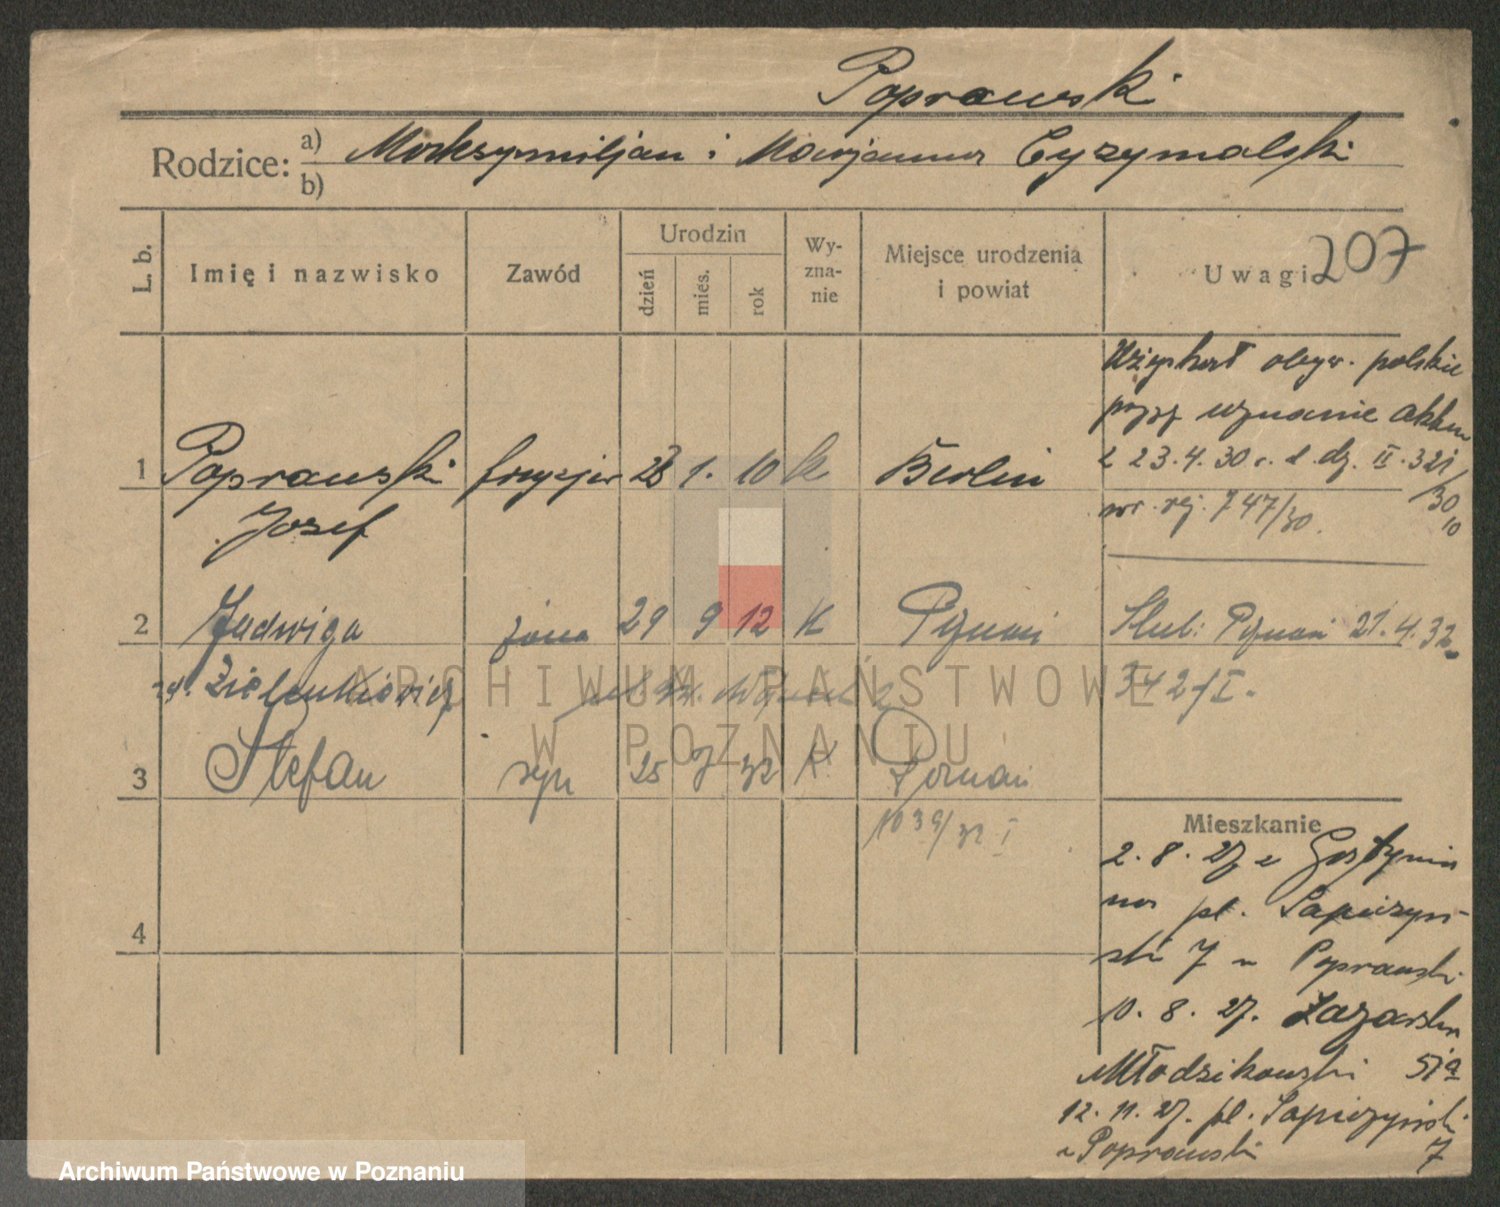 Poprawski
Rodzice: a) Maksymiljan i Marjanna Cyzymalski
b)
L. b.
Imię i nazwisko
Zawód
Urodzin
dzień
mies.
rok
Wy-
zna-
nie
Miejsce urodzenia
i powiat
Uwagi
207
Uzyskał obyw. polskie
przez uznanie
z 23.4.30 r. l. dz. II. 321/30
nr. rej. 747/30.
10
1 Poprawski fryzjer 28 1. 10 k Berlin
Józef
2 Jadwiga żona 29 9 12 K Poznań
Ślub: Poznań 21.4.32
342/I.
Zielenkiewicz
3 Stefan syn 25 7 32 K Poznań
1039/32 I
4
Mieszkanie
2. 8. 27 z Gostynin
na pl. Sapieżyń-
ski 7 u Poprawski
10. 8. 27. Łazarska
Młodzikowski 51a
12. 11. 27. pl. Sapieżyński
u Poprawski 7
ARCHIWUM PAŃSTWOWE
W POZNANIU
Archiwum Państwowe w Poznaniu